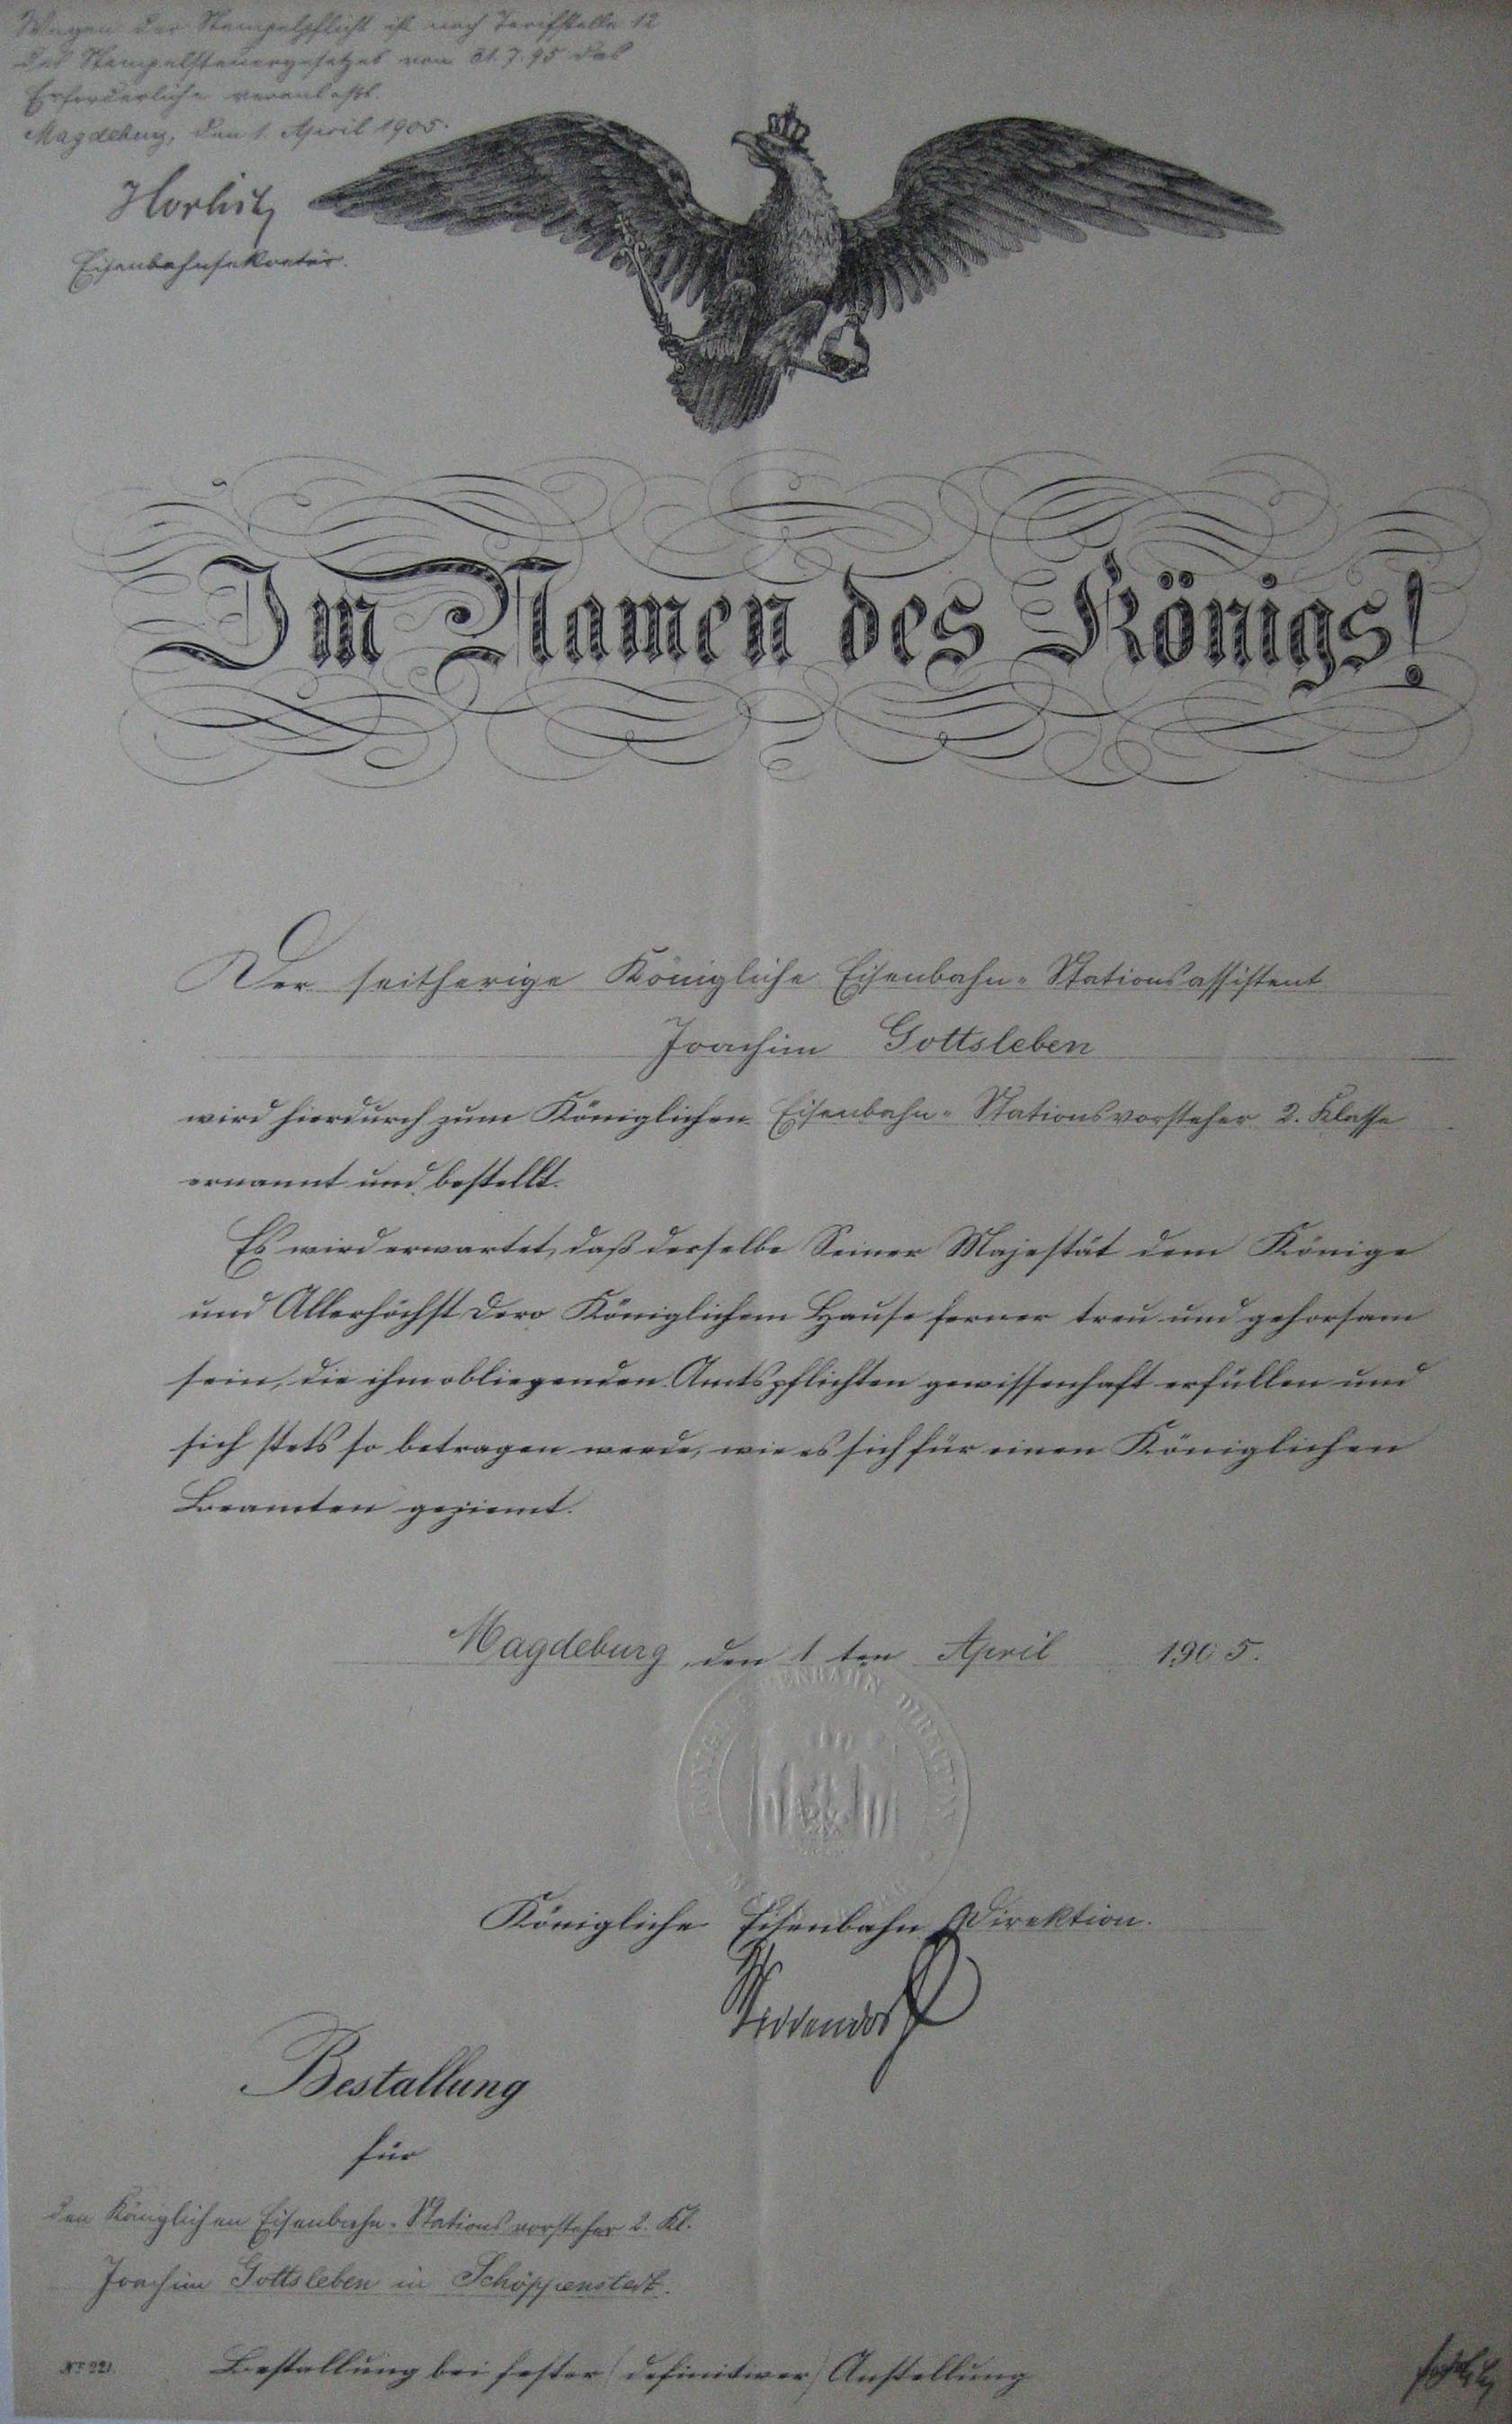 Wegen der Stempelpflicht ist nach Tarifstelle 12
des Stempelsteuergesetzes vom 31.7.95 das
Erforderliche veranlaßt.
Magdeburg, den 1. April 1905.
Eisenbahnsekretär.
Im Namen des Königs!
Der seitherige Königliche Eisenbahn-Stationsassistent
Joachim Gottsleben
wird hierdurch zum Königlichen Eisenbahn-Stationsvorsteher 2. Klasse
ernannt und bestellt.
Es wird erwartet, daß derselbe Seiner Majestät dem Könige
und Allerhöchst Dero Königlichem Hause ferner treu und gehorsam
sein, die ihm obliegenden Amtspflichten gewissenhaft erfüllen und
sich stets so betragen werde, wie es sich für einen Königlichen
Beamten geziemt.
Magdeburg, den 1 ten April 1905.
EISENBAHN DIRECTION
Königliche Eisenbahn Direktion.
Bestallung
für
den Königlichen Eisenbahn-Stationsvorsteher 2. Kl.
Joachim Gottsleben in Schöppenstedt.
No 221.
Bestallung bei fester (definitiver) Anstellung